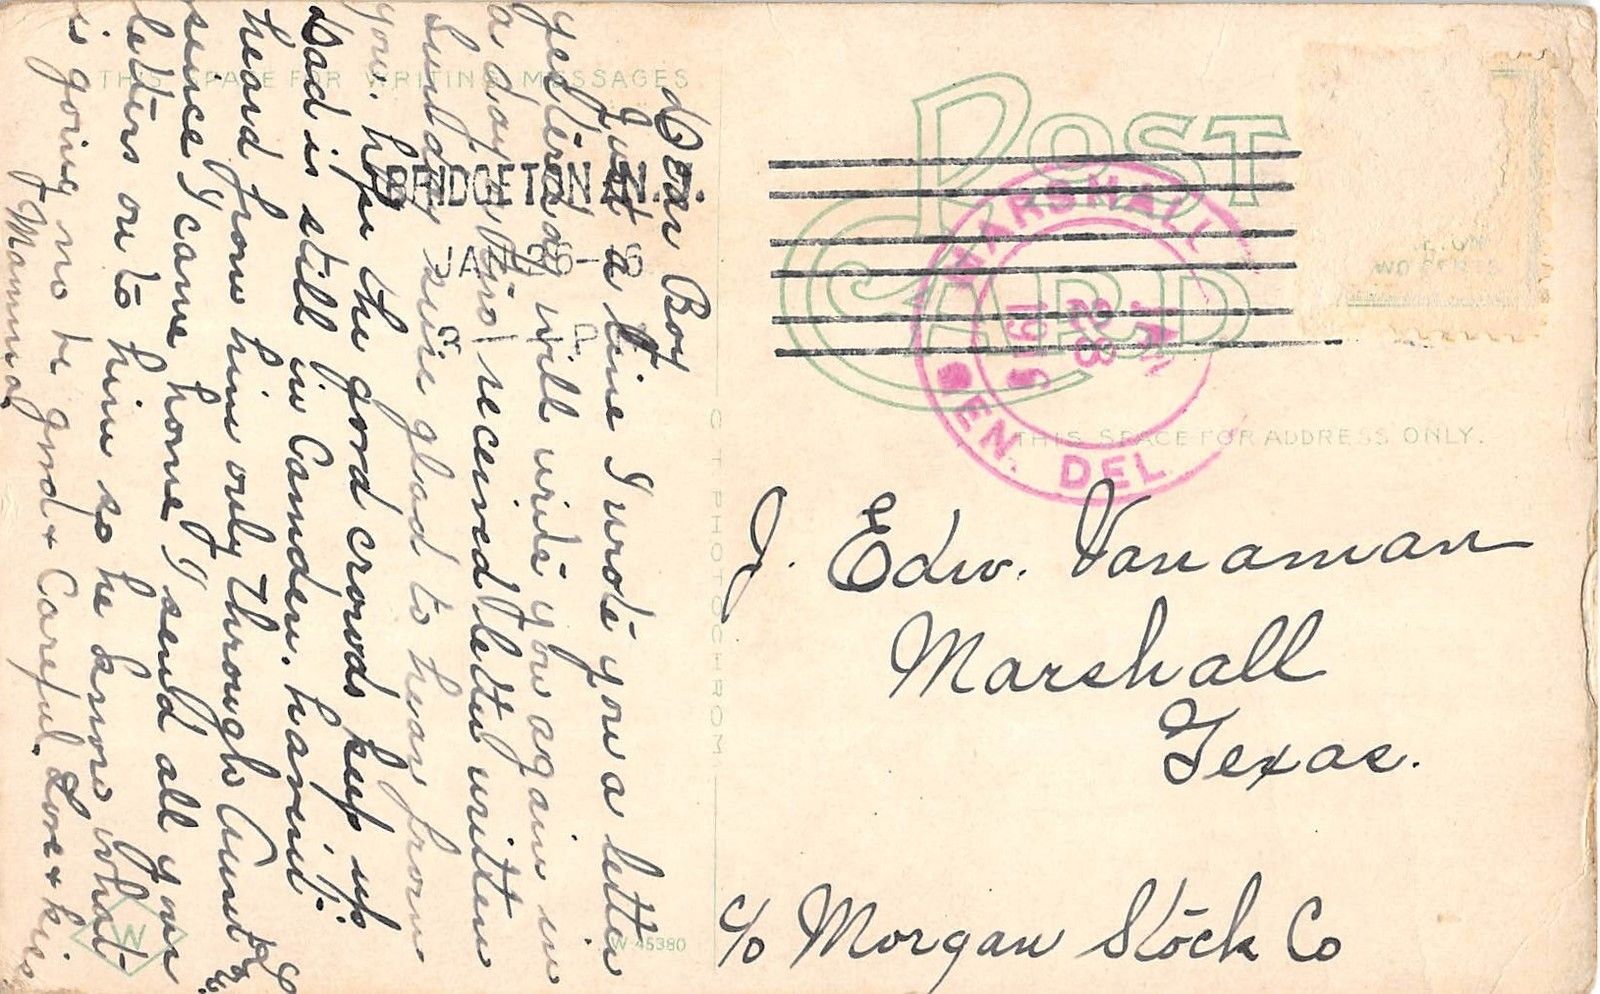 THIS SPACE FOR WRITING MESSAGES
Dear Boy
Just a line I wrote you a letter
yesterday will write you again in
a day or two received letter written
Sunday sure glad to hear from
you. hope the good crowds keep up
Dad is still in Camden. havent
heard from him only through Aunt
since I came home I send all your
letters on to him so he knows what
is going no be good & Careful. Love & kiss
Mamma.
BRIDGETON, N.J.
JAN 26-6
POST
CARD
MARSHALL
JAN
28
191
GEN. DEL.
THIS SPACE FOR ADDRESS ONLY.
C T PHOTOCHROM
J. Edw. Vanaman
Marshall
Texas.
c/o Morgan Stock Co
W
W-45380